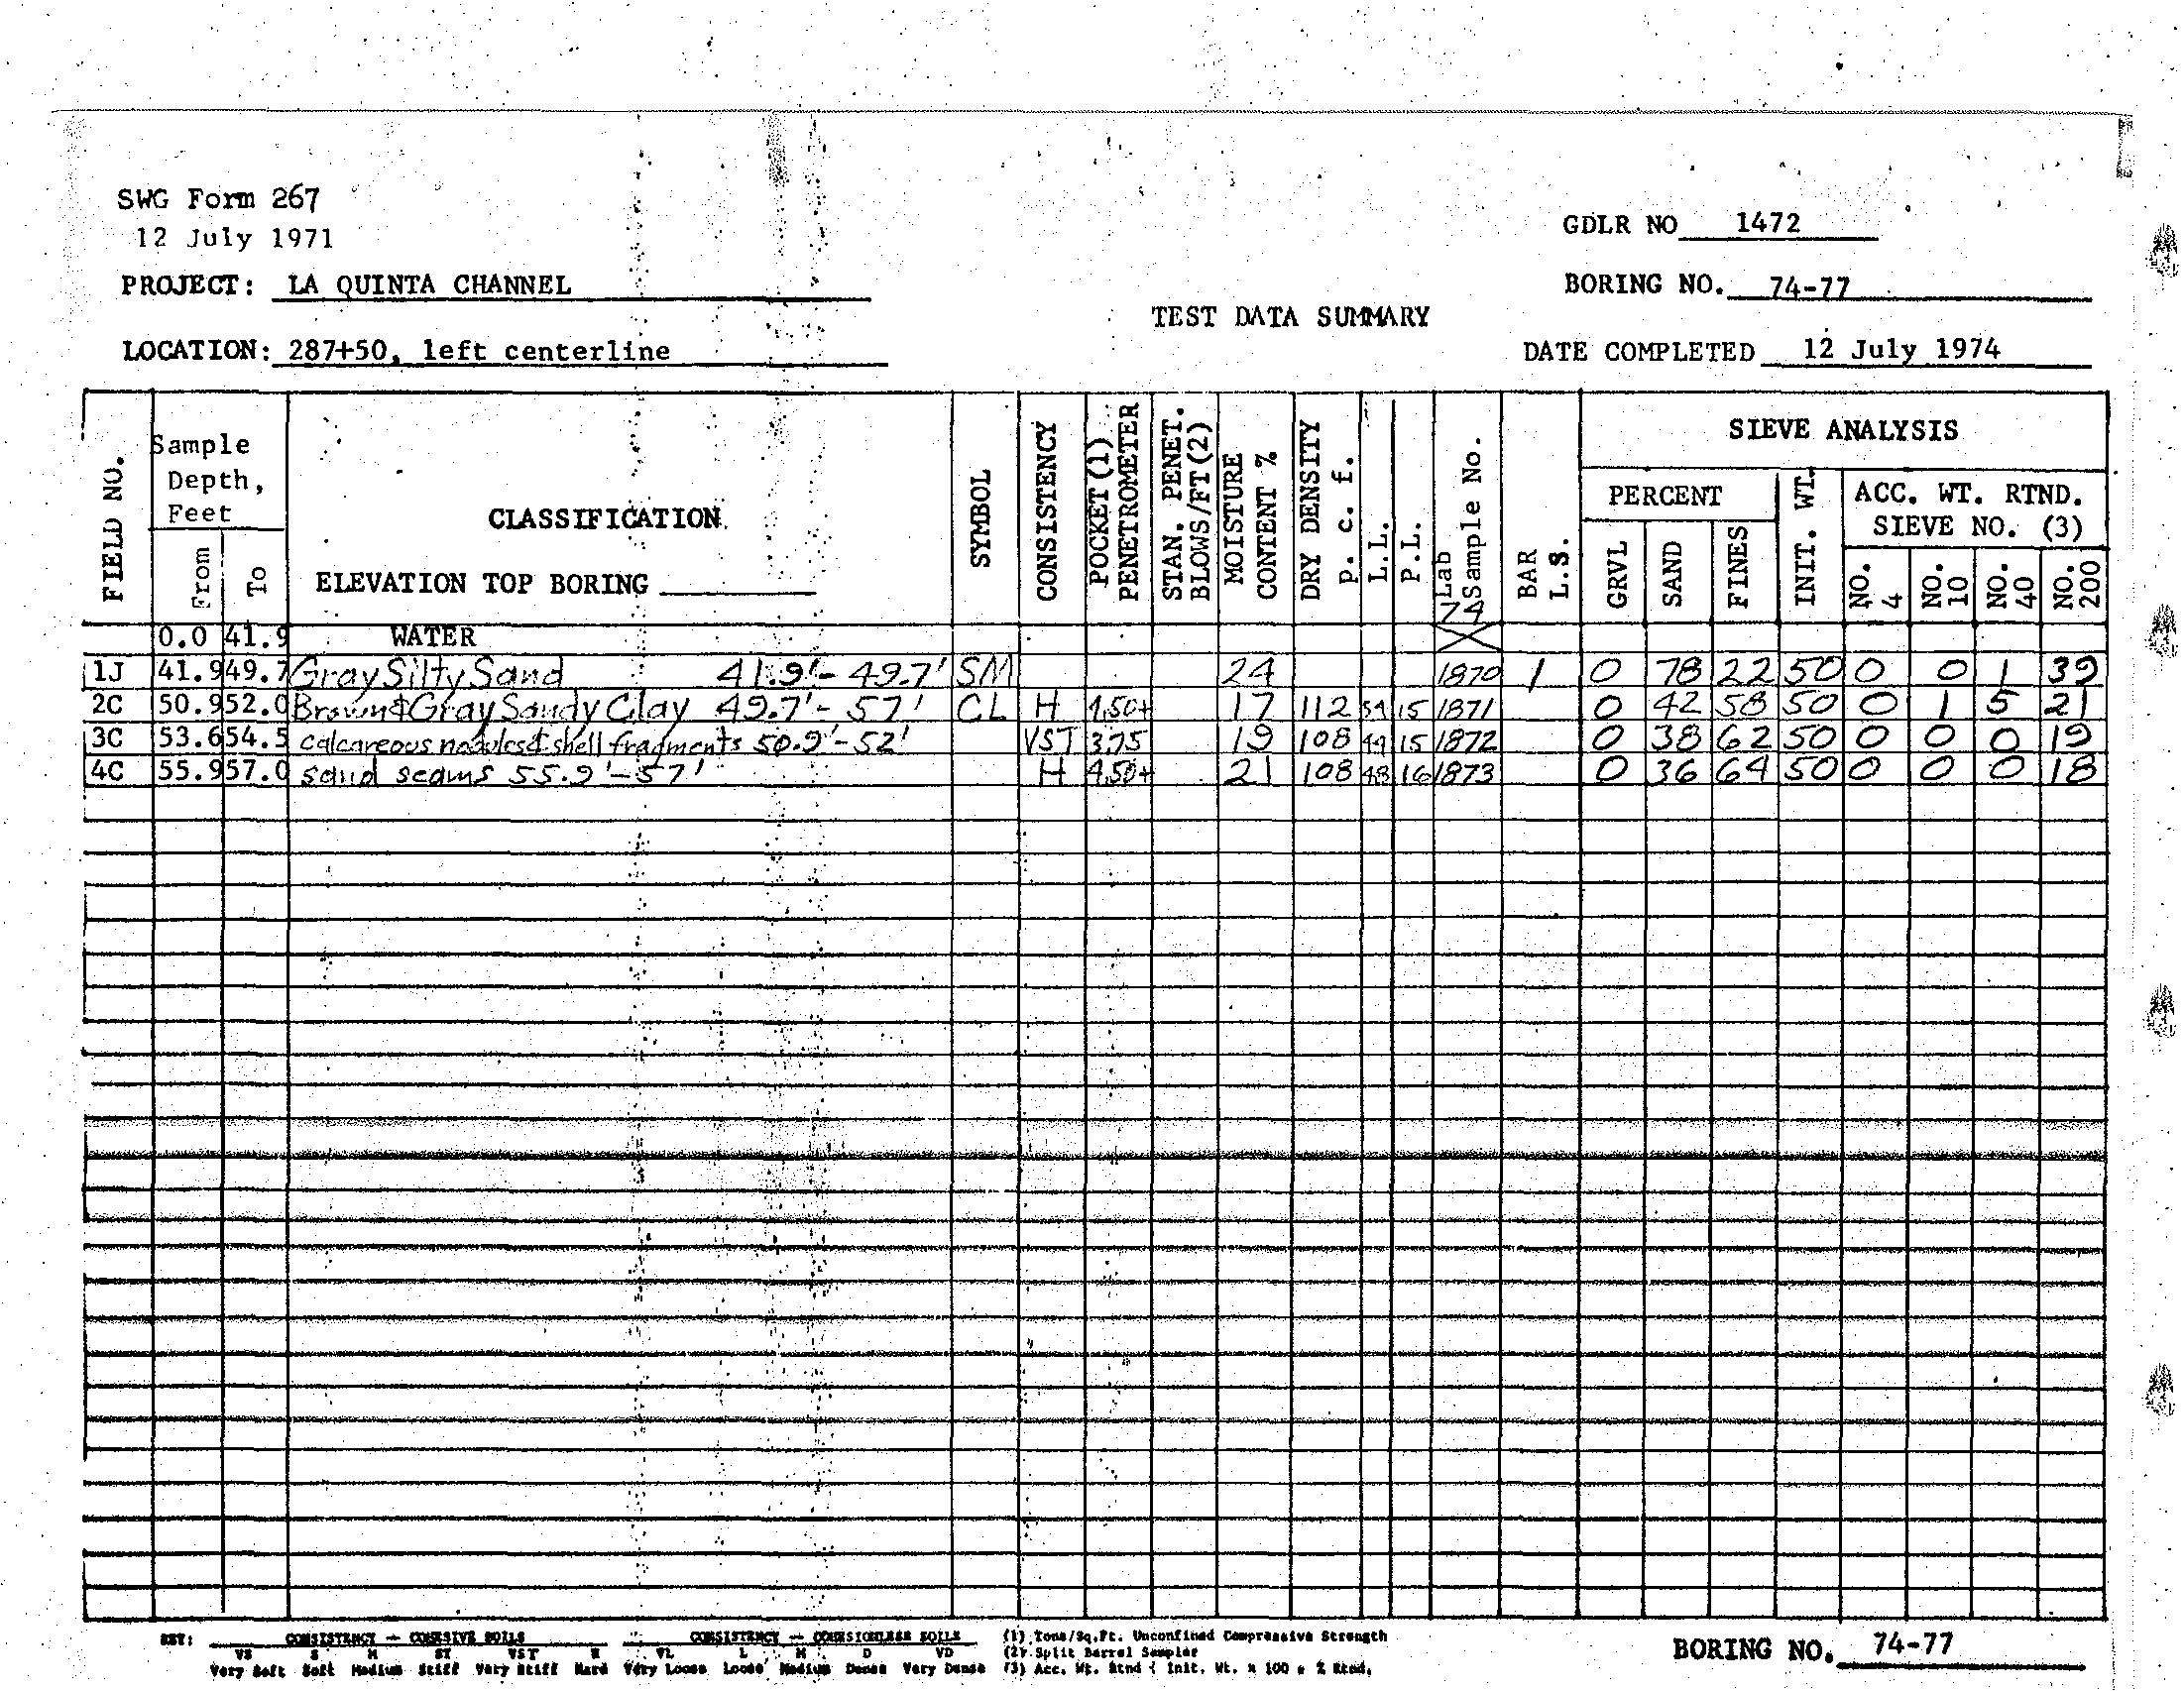 SWG Form 267
12 July 1971
GDLR NO 1472
PROJECT: LA QUINTA CHANNEL
BORING NO. 74-77
TEST DATA SUMMARY
LOCATION: 287+50, left centerline
DATE COMPLETED 12 July 1974
FIELD NO.
Sample Depth, Feet
From
To
CLASSIFICATION
ELEVATION TOP BORING
SYMBOL
CONSISTENCY
POCKET (1) PENETROMETER
STAN. PENET. BLOWS/FT (2)
MOISTURE CONTENT %
DRY DENSITY p. c. f.
L.L.
P.L.
Lab Sample No.
74
BAR L.S.
SIEVE ANALYSIS
PERCENT
GRVL
SAND
FINES
INIT. WT.
ACC. WT. RTND. SIEVE NO. (3)
NO. 4
NO. 10
NO. 40
NO. 200
0.0 41.9 WATER
1J 41.9 49.7 Gray Silty Sand 41.9'- 49.7' SM 24 1870 1 0 78 22 50 0 0 1 39
2C 50.9 52.0 Brown & Gray Sandy Clay 49.7'- 57' CL H 4.50+ 17 112 15 1871 0 42 58 50 0 1 5 21
3C 53.6 54.5 calcareous nodules & shell fragments 50.9'- 52' VST 3.75 19 108 49 15 1872 0 38 62 50 0 0 0 19
4C 55.9 57.0 sand seams 55.9'-57' H 4.50+ 21 108 48 16 1873 0 36 64 50 0 0 0 18
KEY: CONSISTENCY - COHESIVE SOILS CONSISTENCY - COHESIONLESS SOILS (1) Tons/Sq.Ft. Unconfined Compressive Strength
VS S M ST VST H VL L M D VD (2) Split Barrel Sampler
Very Soft Soft Medium Stiff Very Stiff Hard Very Loose Loose Medium Dense Very Dense (3) Acc. Wt. Rtnd ÷ Init. Wt. x 100 = % Rtnd.
BORING NO. 74-77